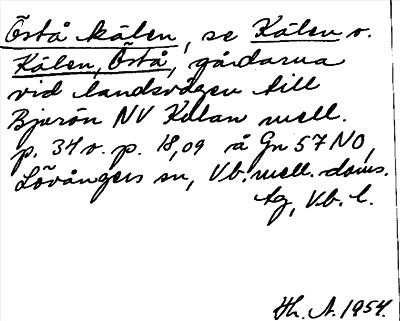 Östå kålen, se Kålen o.
Kålen, Östå, gårdarna
vid landsvägen till
Bjurön NV Kålan mell.
p. 34 o. p. 18,09 å Gn 57 NO,
Lövångers sn, Vb. mell. doms.
tg, Vb. l.
Hh. A. 1954.